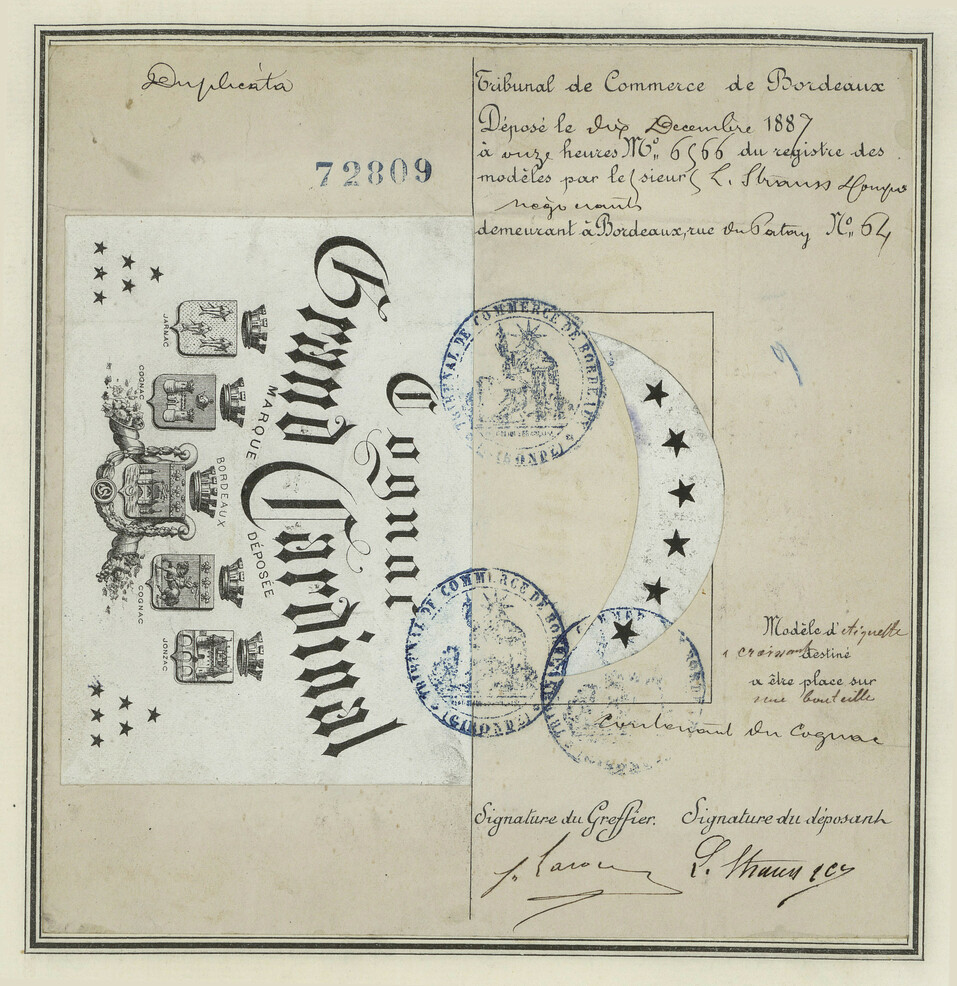 Duplicata
72809
Tribunal de Commerce de Bordeaux
Déposé le dix Decembre 1887
à onze heures No. 6566 du registre des
modèles par le sieur L. Strauss & Compe
négociants
demeurant à Bordeaux, rue du Patay No. 64
Cognac
Grand Cardinal
MARQUE DÉPOSÉE
JARNAC
COGNAC
BORDEAUX
COGNAC
JONZAC
TRIBUNAL DE COMMERCE DE BORDEAUX
(GIRONDE)
TRIBUNAL DE COMMERCE DE BORDEAUX
(GIRONDE)
9
Modèle d'étiquette
& croissant destiné
a être place sur
une bouteille
contenant du Cognac
Signature du Greffier. Signature du déposant
L. Strauss & Cy